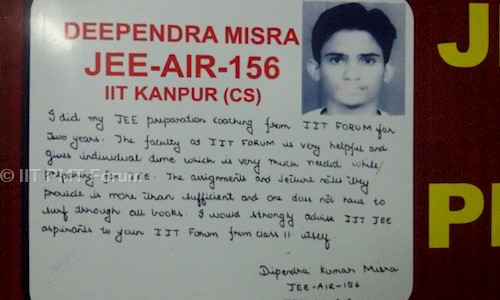 DEEPENDRA MISRA
JEE-AIR-156
IIT KANPUR (CS)
I did my JEE preparation coaching from IIT FORUM for
two years. The faculty at IIT FORUM is very helpful and
gives individual time which is very much needed while
preparing for JEE. The assignments and lecture notes they
provide is more than sufficient and one does not have to
surf through all books. I would strongly advise IIT JEE
aspirants to join IIT Forum from class 11 itself.
Dipendra Kumar Misra
JEE-AIR-156
J
P
IIT Forum